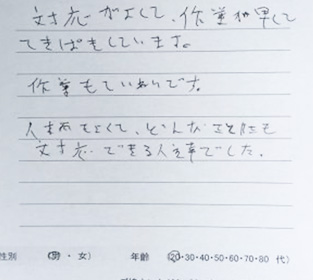 対応がよくて、作業が早くて
てきぱきしています。
作業もていねいです。
人柄もよくて、どんなことにも
対応できる人を幸でした。
性別 (男・女) 年齢 (20・30・40・50・60・70・80 代)